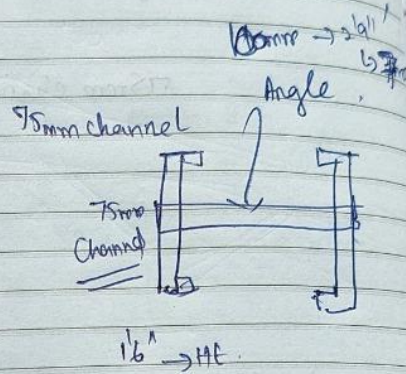 → 2'9"
Angle.
75mm channel
75mm
Channel
1'6" → Ht.